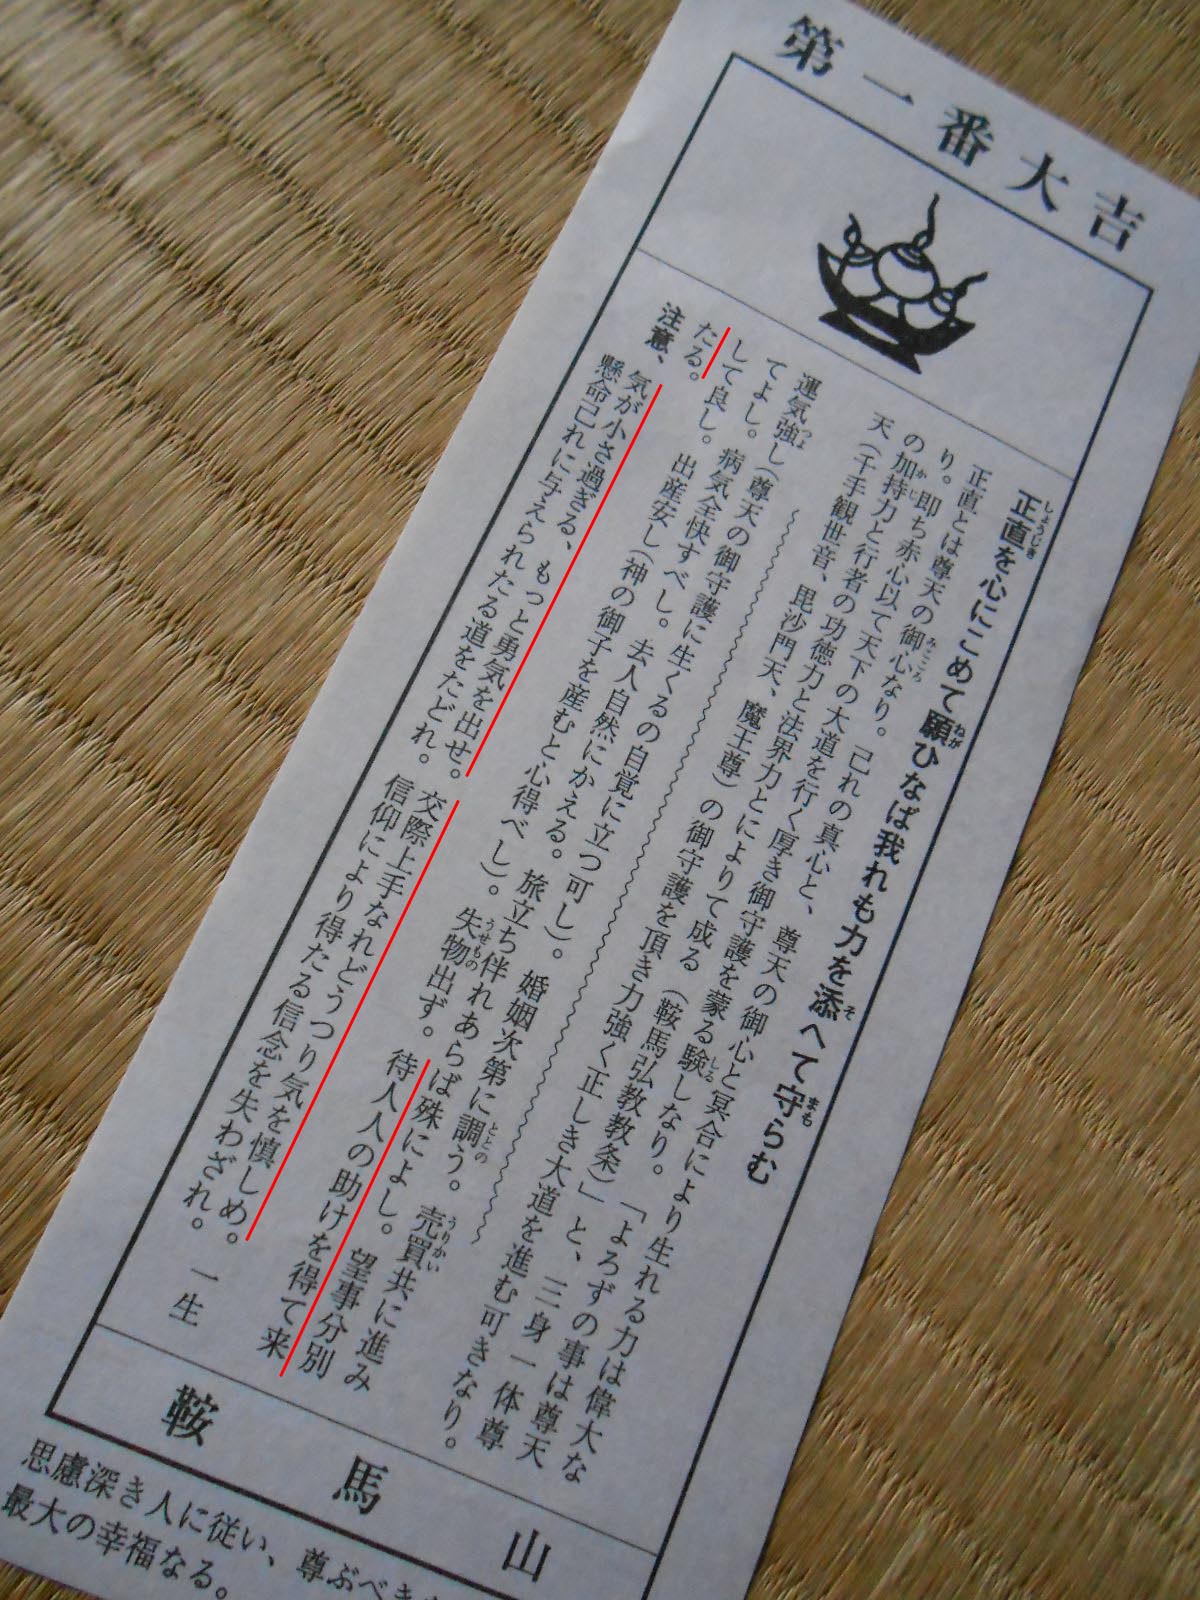 第一番大吉
正直を心にこめて願ひなば我れも力を添へて守らむ
正直とは尊天の御心なり。己れの真心と、尊天の御心と冥合により生れる力は偉大な
り。即ち赤心以て天下の大道を行く厚き御守護を蒙る験しなり。「よろずの事は尊天
の加持力と行者の功徳力と法界力とによりて成る(鞍馬弘教教条)」と、三身一体尊
天(千手観世音、毘沙門天、魔王尊)の御守護を頂き力強く正しき大道を進む可きなり。
運気強し(尊天の御守護に生くるの自覚に立つ可し)。婚姻次第に調う。売買共に進み
てよし。病気全快すべし。去人自然にかえる。旅立ち伴れあらば殊によし。望事分別
して良し。出産安し(神の御子を産むと心得べし)。失物出ず。待人人の助けを得て来
たる。
注意、気が小さ過ぎる、もっと勇気を出せ。交際上手なれどうつり気を慎しめ。一生
懸命己れに与えられたる道をたどれ。信仰により得たる信念を失わざれ。
鞍馬山
思慮深き人に従い、尊ぶべき
最大の幸福なる。